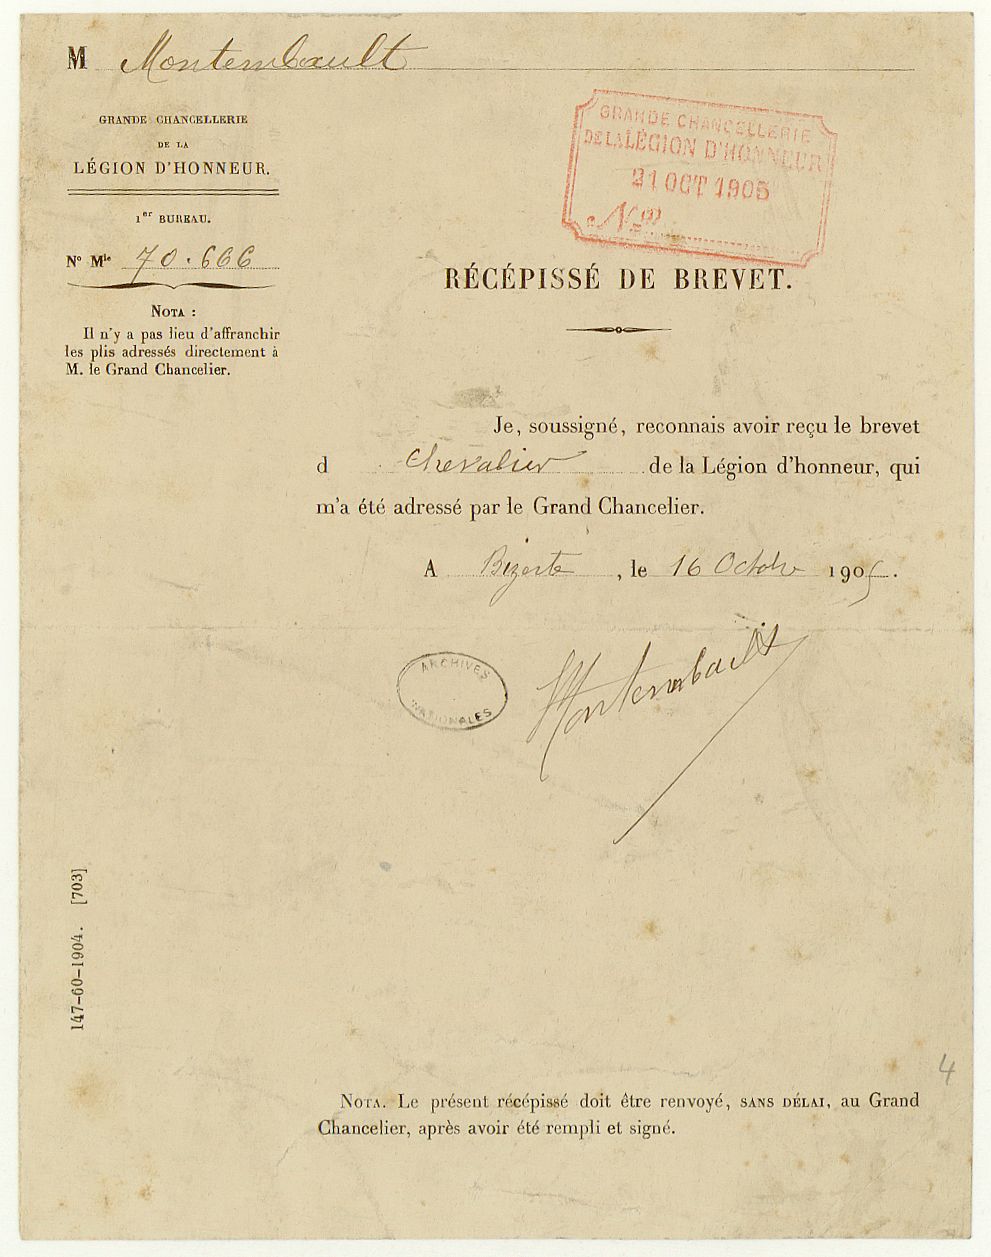 M Montembault
GRANDE CHANCELLERIE
DE LA
LÉGION D'HONNEUR.
1er BUREAU.
N° Mle 70.666
NOTA :
Il n'y a pas lieu d'affranchir
les plis adressés directement à
M. le Grand Chancelier.
GRANDE CHANCELLERIE
DE LA LÉGION D'HONNEUR
21 OCT 1905
N°
RÉCÉPISSÉ DE BREVET.
Je, soussigné, reconnais avoir reçu le brevet
d Chevalier de la Légion d'honneur, qui
m'a été adressé par le Grand Chancelier.
A Bizerte, le 16 Octobre 1905.
ARCHIVES
NATIONALES
Montembault
147-60-1904. [703]
4
NOTA. Le présent récépissé doit être renvoyé, SANS DÉLAI, au Grand
Chancelier, après avoir été rempli et signé.